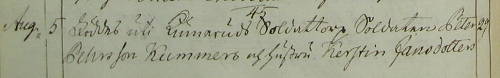 Aug. 5 Föddes uti Gunnaruds Soldattorp, Soldaten Peter 29
Pehrsson Kummers och hustru Kerstin Jansdotters